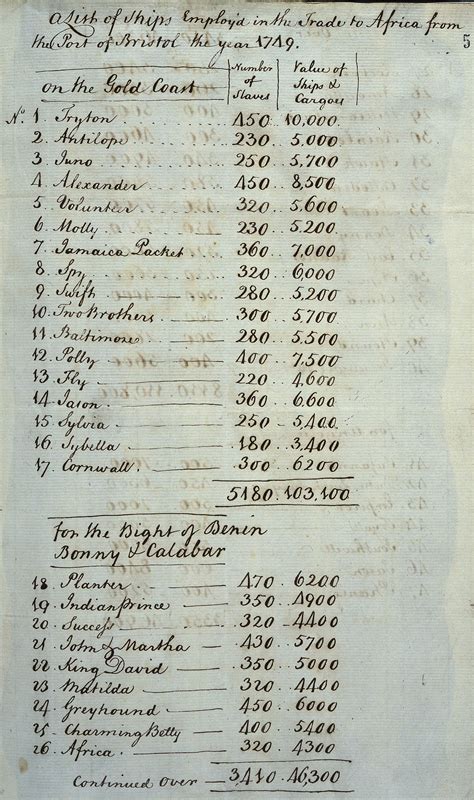 5
a List of Ships Employ'd in the Trade to Africa from
the Port of Bristol the year 1749.
on the Gold Coast Number of Slaves Value of Ships & Cargoes
No. 1. Tryton 450 10,000.
2. Antilope 230 .. 5,000
3. Juno 250 .. 5,700
4. Alexander 450 .. 8,500
5. Volunteer 320 .. 5,600
6. Molly 230 .. 5,200
7. Jamaica Packet. 360 .. 7,000
8. Spy 320 .. 6,000
9. Swift 280 .. 5,200
10. Two Brothers 300 .. 5,700
11. Baltimore 280 .. 5,500
12. Polly 400 .. 7,500
13. Fly 220 .. 4,600
14. Jason 360 .. 6,600
15. Sylvia 250 .. 5,400
16. Sybella 180 .. 3,400
17. Cornwall. 300 .. 6200
5180. 103,100
for the Bight of Benin
Bonny & Calabar
18. Planter 470 .. 6200
19. Indian prince 350 .. 4900
20. Success 320 .. 4400
21. John & Martha 430 .. 5700
22. King David 350 .. 5000
23. Matilda 320 .. 4400
24. Greyhound 450 .. 6000
25. Charming Betty 400 .. 5400
26. Africa. 320 .. 4300
Continued over 3,410. 46,300